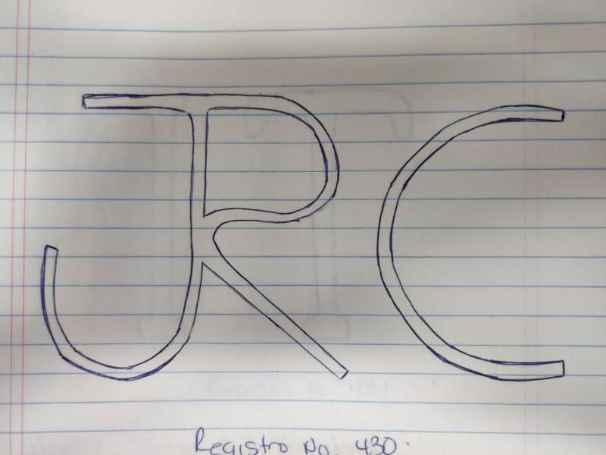 JR C
Registro No. 430.